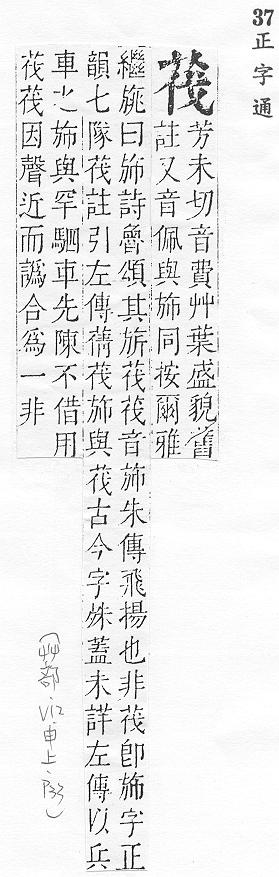 37正字通
茷
芳未切音費艸葉盛貌舊
註又音佩與斾同按爾雅
繼旐曰斾詩魯頌其旂茷茷音斾朱傳飛揚也非茷卽斾字正
韻七隊茷註引左傳蒨茷斾與茷古今字殊蓋未詳左傳以兵
車之斾與罕駟車先陳不借用
茷茷因聲近而譌合爲一非
(艸部